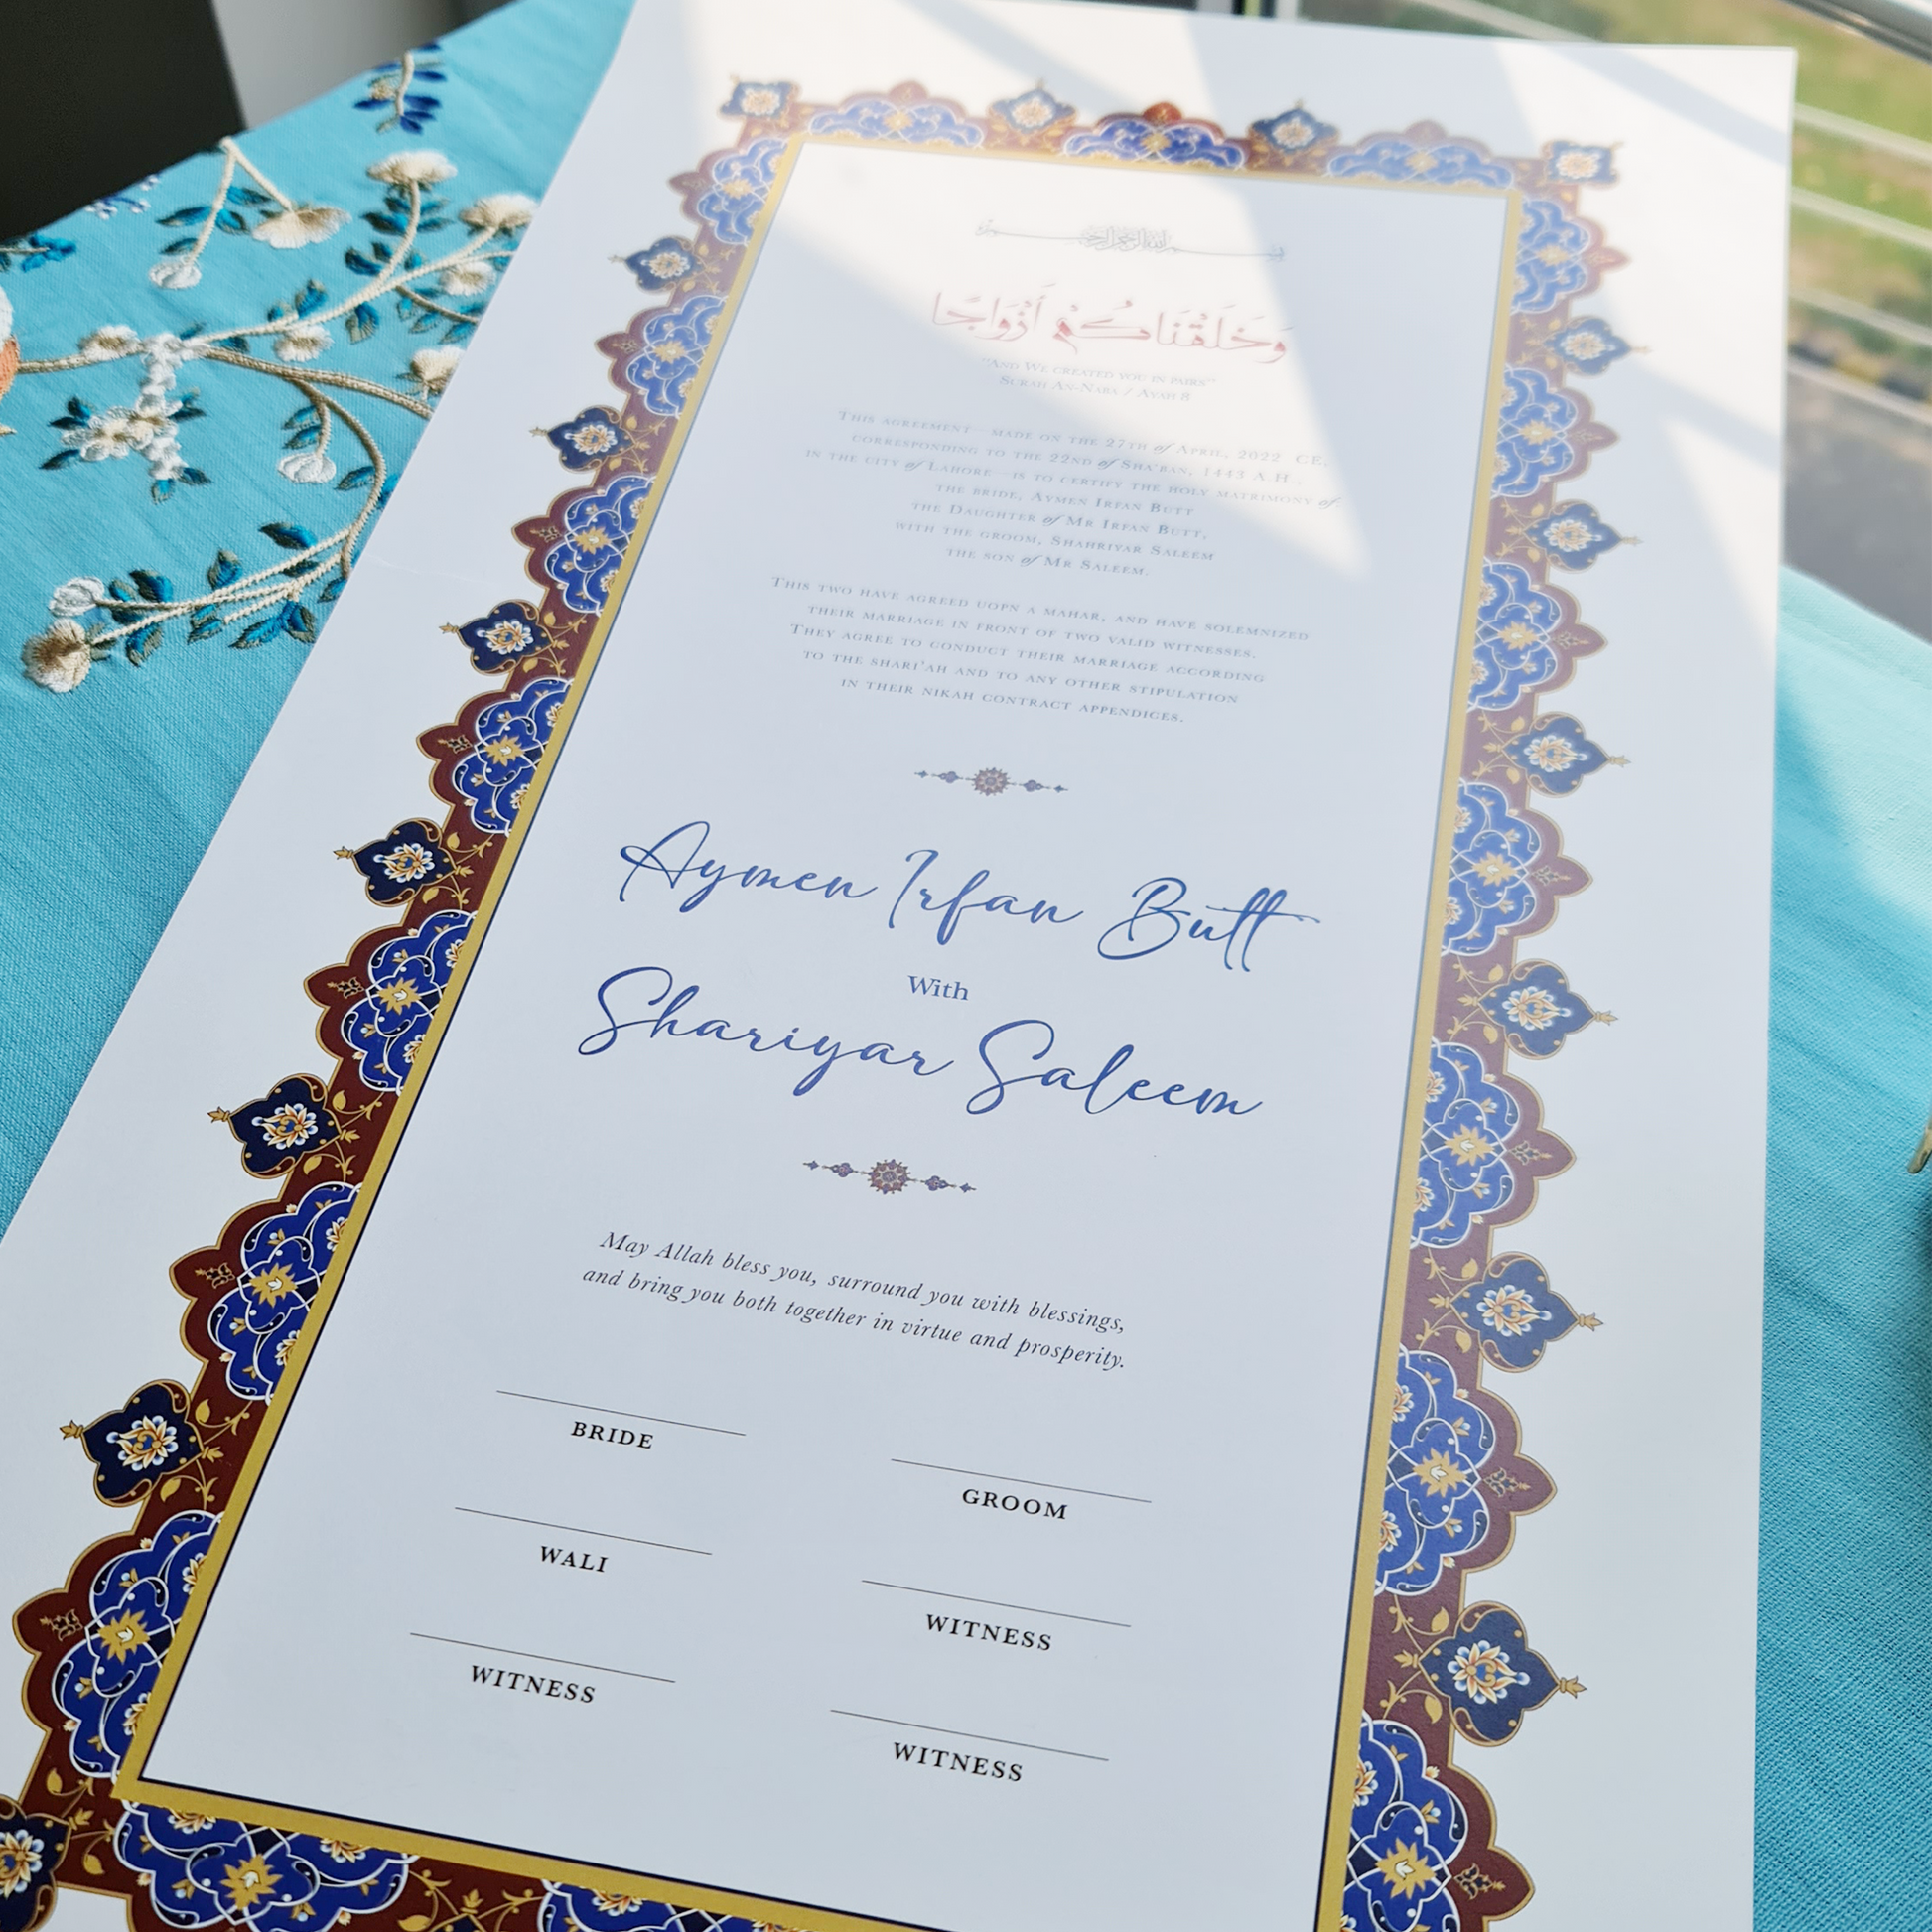 بسم الله الرحمن الرحيم
وَخَلَقْنَاكُمْ أَزْوَاجًا
"And We created you in pairs"
Surah An-Naba / Ayah 8
This agreement— made on the 27th of April, 2022 CE,
corresponding to the 22nd of Sha'ban, 1443 A.H.,
in the city of Lahore—is to certify the holy matrimony of:
the bride, Aymen Irfan Butt
the Daughter of Mr Irfan Butt,
with the groom, Shahriyar Saleem
the son of Mr Saleem.
This two have agreed uopn a mahar, and have solemnized
their marriage in front of two valid witnesses.
They agree to conduct their marriage according
to the shari'ah and to any other stipulation
in their nikah contract appendices.
Aymen Irfan Butt
With
Shariyar Saleem
May Allah bless you, surround you with blessings,
and bring you both together in virtue and prosperity.
BRIDE
GROOM
WALI
WITNESS
WITNESS
WITNESS